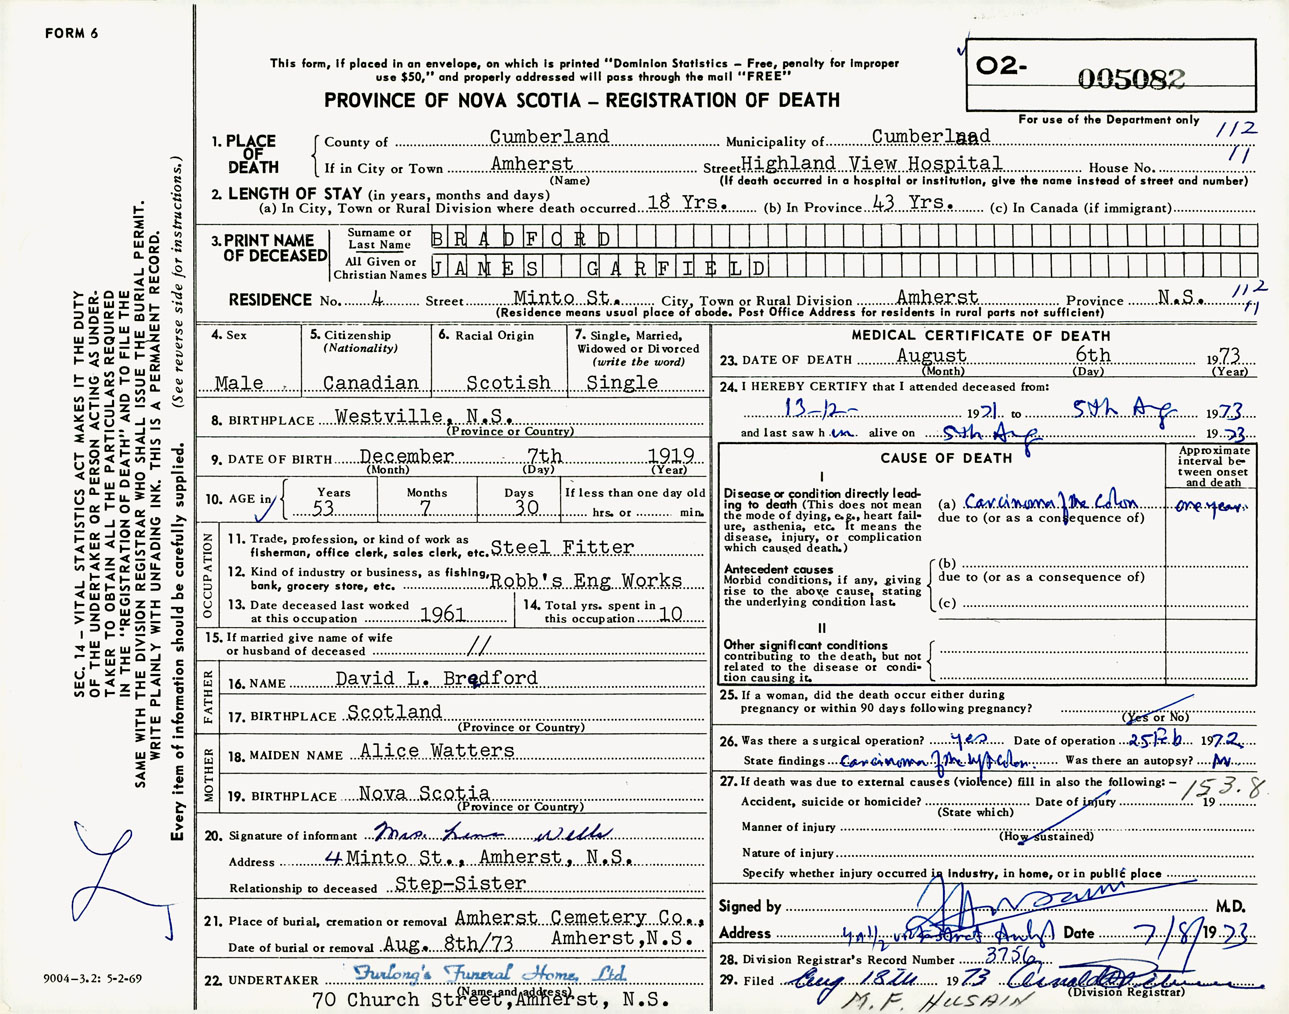 FORM 6
This form, if placed in an envelope, on which is printed "Dominion Statistics – Free, penalty for improper
use $50," and properly addressed will pass through the mail "FREE"
PROVINCE OF NOVA SCOTIA – REGISTRATION OF DEATH
02- 005082
For use of the Department only
112
11
1. PLACE OF DEATH
County of Cumberland Municipality of Cumberland
If in City or Town Amherst Street Highland View Hospital House No.
(Name) (If death occurred in a hospital or institution, give the name instead of street and number)
2. LENGTH OF STAY (in years, months and days)
(a) In City, Town or Rural Division where death occurred 18 Yrs. (b) In Province 43 Yrs. (c) In Canada (if immigrant)
3. PRINT NAME OF DECEASED
Surname or Last Name BRADFORD
All Given or Christian Names JAMES GARFIELD
RESIDENCE No. 4 Street Minto St. City, Town or Rural Division Amherst Province N.S. 112
(Residence means usual place of abode. Post Office Address for residents in rural parts not sufficient) 11
4. Sex
Male
5. Citizenship
(Nationality)
Canadian
6. Racial Origin
Scotish
7. Single, Married,
Widowed or Divorced
(write the word)
Single
8. BIRTHPLACE Westville, N.S.
(Province or Country)
9. DATE OF BIRTH December 7th 1919
(Month) (Day) (Year)
10. AGE in
Years 53
Months 7
Days 30
If less than one day old
hrs. or min.
OCCUPATION
11. Trade, profession, or kind of work as
fisherman, office clerk, sales clerk, etc. Steel Fitter
12. Kind of industry or business, as fishing,
bank, grocery store, etc. Robb's Eng Works
13. Date deceased last worked
at this occupation 1961
14. Total yrs. spent in
this occupation 10
15. If married give name of wife
or husband of deceased //
FATHER
16. NAME David L. Bradford
17. BIRTHPLACE Scotland
(Province or Country)
MOTHER
18. MAIDEN NAME Alice Watters
19. BIRTHPLACE Nova Scotia
(Province or Country)
20. Signature of informant Mrs. Lena Wells
Address 4 Minto St., Amherst, N.S.
Relationship to deceased Step-Sister
21. Place of burial, cremation or removal Amherst Cemetery Co.,
Date of burial or removal Aug. 8th/73 Amherst, N.S.
22. UNDERTAKER Furlong's Funeral Home, Ltd.
(Name and address)
70 Church Street, Amherst, N.S.
MEDICAL CERTIFICATE OF DEATH
23. DATE OF DEATH August 6th 1973
(Month) (Day) (Year)
24. I HEREBY CERTIFY that I attended deceased from:
13-12- 1971 to 5th Aug 1973
and last saw him alive on 5th Aug 1973
CAUSE OF DEATH
Approximate
interval be-
tween onset
and death
I
Disease or condition directly lead-
ing to death (This does not mean
the mode of dying, e.g., heart fail-
ure, asthenia, etc. It means the
disease, injury, or complication
which caused death.)
(a) Carcinoma of the Colon one year.
due to (or as a consequence of)
Antecedent causes
Morbid conditions, if any, giving
rise to the above cause, stating
the underlying condition last.
(b)
due to (or as a consequence of)
(c)
II
Other significant conditions
contributing to the death, but not
related to the disease or condi-
tion causing it.
25. If a woman, did the death occur either during
pregnancy or within 90 days following pregnancy?
(Yes or No)
26. Was there a surgical operation? yes Date of operation 25 Feb 1972
State findings Carcinoma of the left Colon. Was there an autopsy? No
27. If death was due to external causes (violence) fill in also the following: –
153.8
Accident, suicide or homicide? Date of injury 19
(State which)
Manner of injury
(How sustained)
Nature of injury
Specify whether injury occurred in industry, in home, or in public place
Signed by M.D.
Address Date 7/8/1973
28. Division Registrar's Record Number 3756
29. Filed Aug 18th 1973
(Division Registrar)
M. F. HUSAIN
SEC. 14 – VITAL STATISTICS ACT MAKES IT THE DUTY
OF THE UNDERTAKER OR PERSON ACTING AS UNDER-
TAKER TO OBTAIN ALL THE PARTICULARS REQUIRED
IN THE "REGISTRATION OF DEATH" AND TO FILE THE
SAME WITH THE DIVISION REGISTRAR WHO SHALL ISSUE THE BURIAL PERMIT.
WRITE PLAINLY WITH UNFADING INK. THIS IS A PERMANENT RECORD.
Every item of information should be carefully supplied. (See reverse side for instructions.)
9004–3.2: 5-2-69